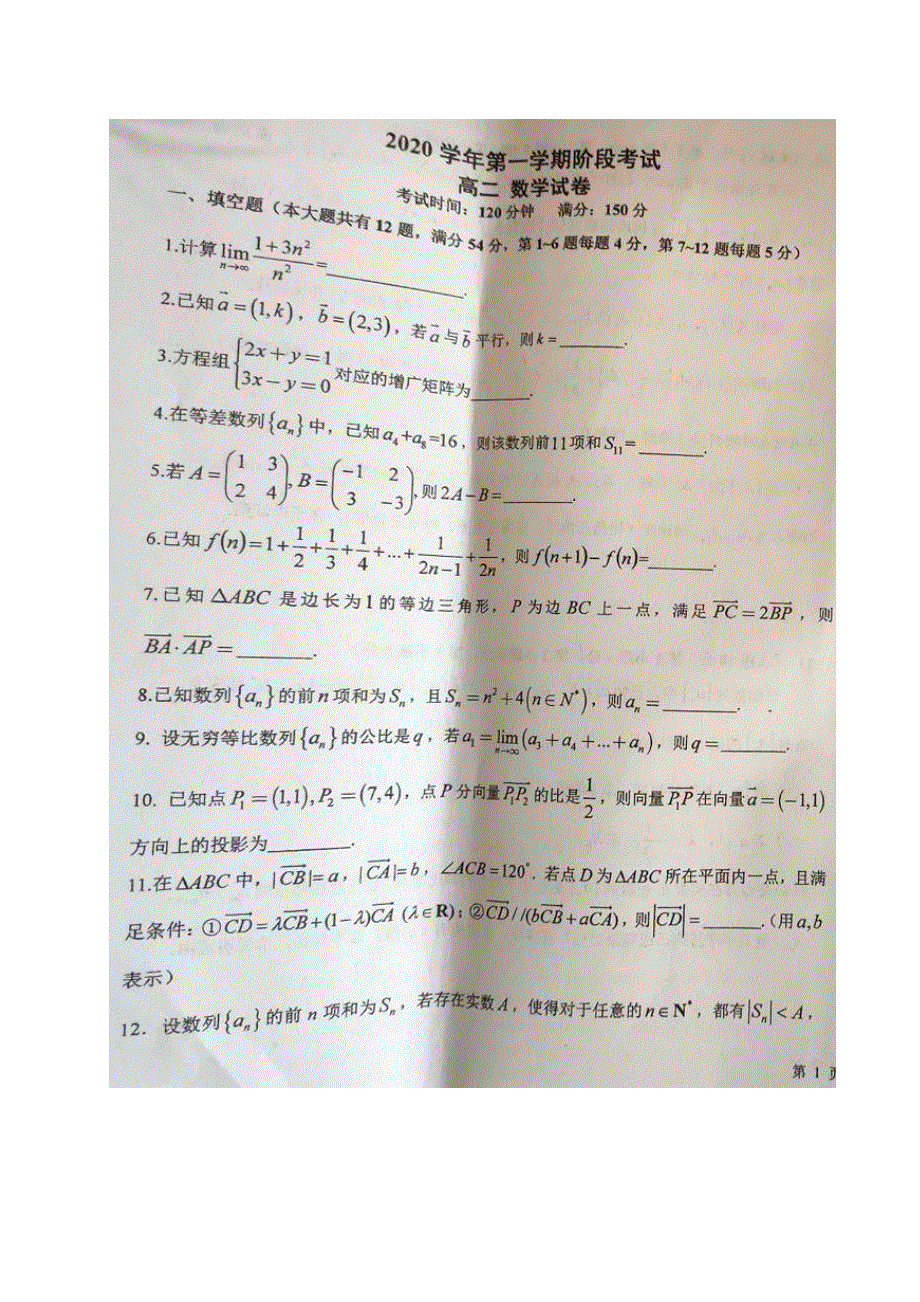 2020 学年第一学期阶段考试
高二 数学试卷
考试时间：120 分钟 满分：150 分
一、填空题（本大题共有 12 题，满分 54 分，第 1~6 题每题 4 分，第 7~12 题每题 5 分）
1.计算 $\lim_{n\to\infty}\frac{1+3n^2}{n^2}$=________.
2.已知 $\vec{a}=(1,k)$，$\vec{b}=(2,3)$，若 $\vec{a}$ 与 $\vec{b}$ 平行，则 k =________.
3.方程组 $\begin{cases}2x+y=1\\3x-y=0\end{cases}$ 对应的增广矩阵为________.
4.在等差数列 $\{a_n\}$ 中，已知 $a_4+a_8=16$，则该数列前11项和 $S_{11}$=________.
5.若 $A=\begin{pmatrix}1&3\\2&4\end{pmatrix},B=\begin{pmatrix}-1&2\\3&-3\end{pmatrix}$,则 $2A-B$=________.
6.已知 $f(n)=1+\frac{1}{2}+\frac{1}{3}+\frac{1}{4}+...+\frac{1}{2n-1}+\frac{1}{2n}$，则 $f(n+1)-f(n)$=________.
7.已知 $\triangle ABC$ 是边长为 1 的等边三角形，P 为边 BC 上一点，满足 $\overrightarrow{PC}=2\overrightarrow{BP}$，则
$\overrightarrow{BA}\cdot\overrightarrow{AP}=$________.
8.已知数列 $\{a_n\}$ 的前 n 项和为 $S_n$，且 $S_n=n^2+4(n\in N^*)$，则 $a_n=$________.
9. 设无穷等比数列 $\{a_n\}$ 的公比是 q，若 $a_1=\lim_{n\to\infty}(a_3+a_4+...+a_n)$，则 q=________.
10. 已知点 $P_1=(1,1),P_2=(7,4)$，点 P 分向量 $\overrightarrow{P_1P_2}$ 的比是 $\frac{1}{2}$，则向量 $\overrightarrow{P_1P}$ 在向量 $\vec{a}=(-1,1)$
方向上的投影为________.
11.在 $\triangle ABC$ 中，$|\overrightarrow{CB}|=a$，$|\overrightarrow{CA}|=b$，$\angle ACB=120^\circ$. 若点 D 为 $\triangle ABC$ 所在平面内一点，且满
足条件：①$\overrightarrow{CD}=\lambda\overrightarrow{CB}+(1-\lambda)\overrightarrow{CA}$ ($\lambda\in\mathbf{R}$)；②$\overrightarrow{CD}//(b\overrightarrow{CB}+a\overrightarrow{CA})$，则 $|\overrightarrow{CD}|=$________.（用 a,b
表示）
12. 设数列 $\{a_n\}$ 的前 n 项和为 $S_n$，若存在实数 A，使得对于任意的 $n\in\mathbf{N}^*$，都有 $|S_n|<A$，
第 1 页